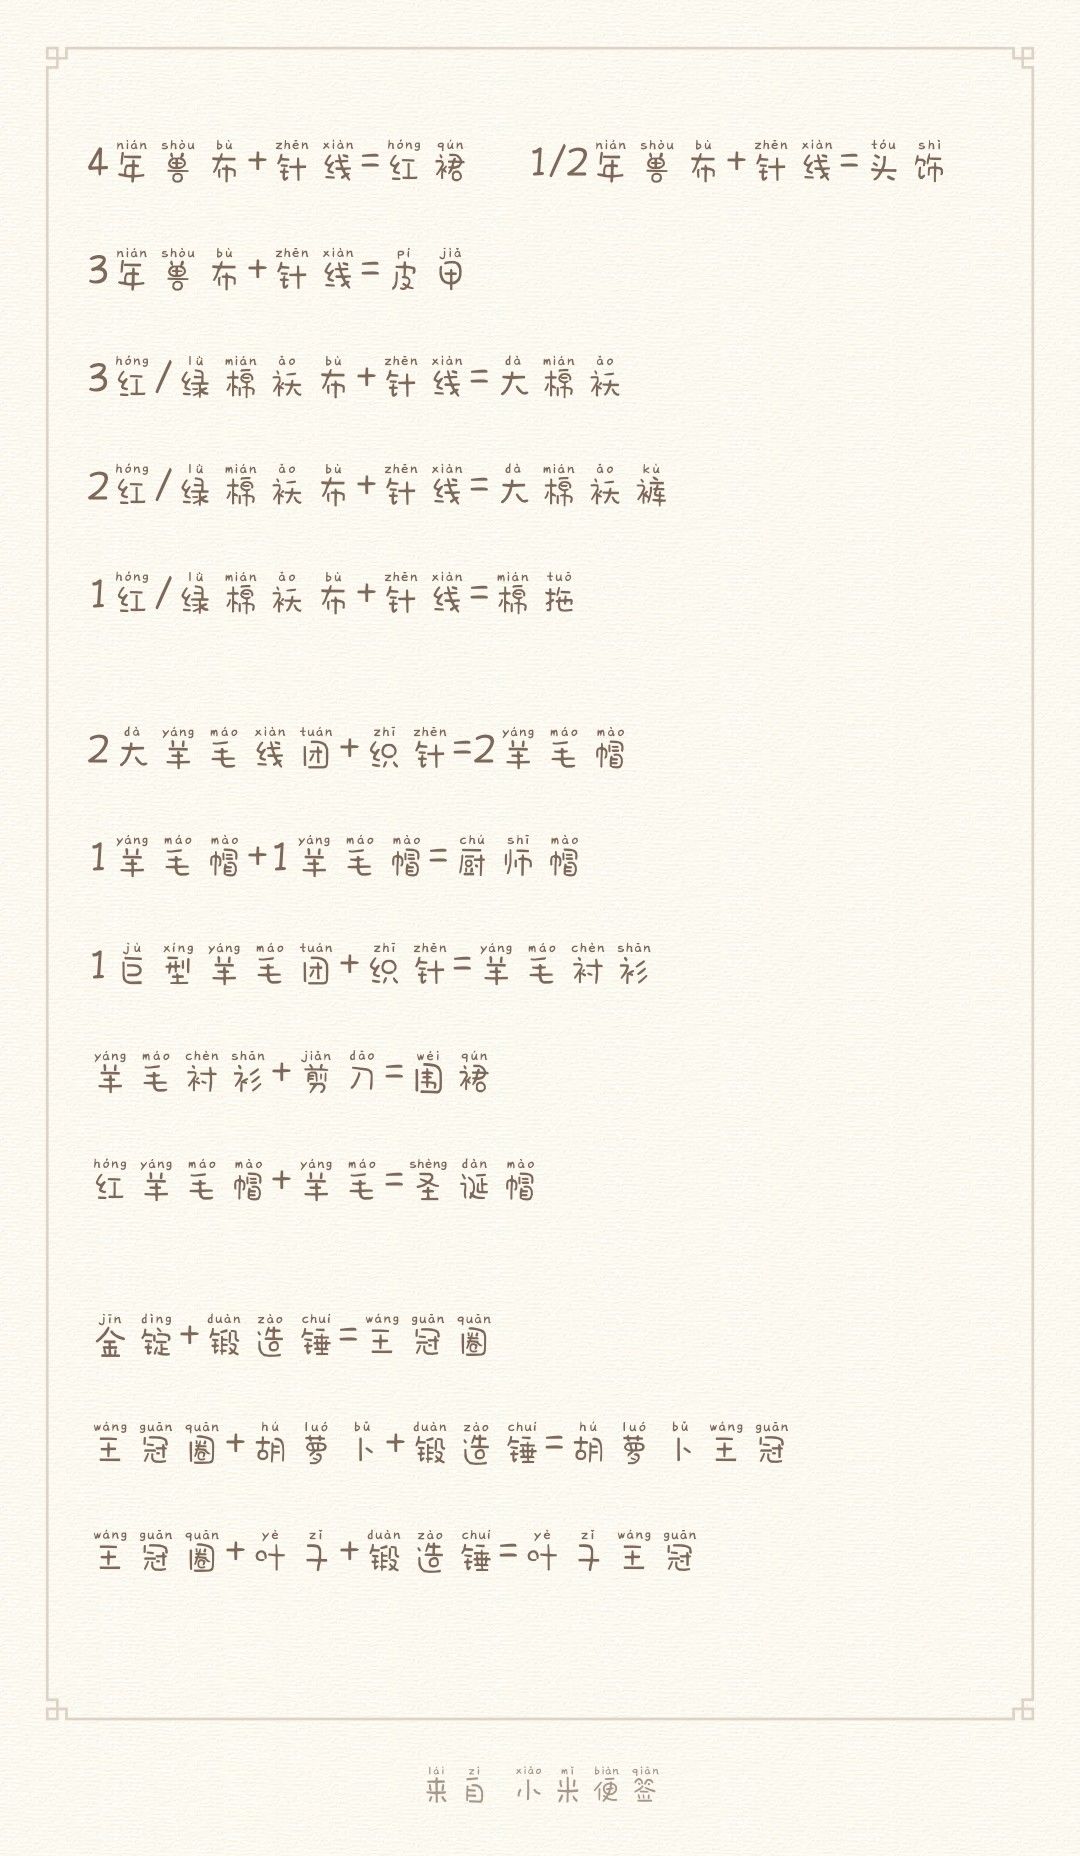 4年兽布+针线=红裙 1/2年兽布+针线=头饰
3年兽布+针线=皮甲
3红/绿棉袄布+针线=大棉袄
2红/绿棉袄布+针线=大棉袄裤
1红/绿棉袄布+针线=棉拖
2大羊毛线团+织针=2羊毛帽
1羊毛帽+1羊毛帽=厨师帽
1巨型羊毛团+织针=羊毛衬衫
羊毛衬衫+剪刀=围裙
红羊毛帽+羊毛=圣诞帽
金锭+锻造锤=王冠圈
王冠圈+胡萝卜+锻造锤=胡萝卜王冠
王冠圈+叶子+锻造锤=叶子王冠
来自 小米便签